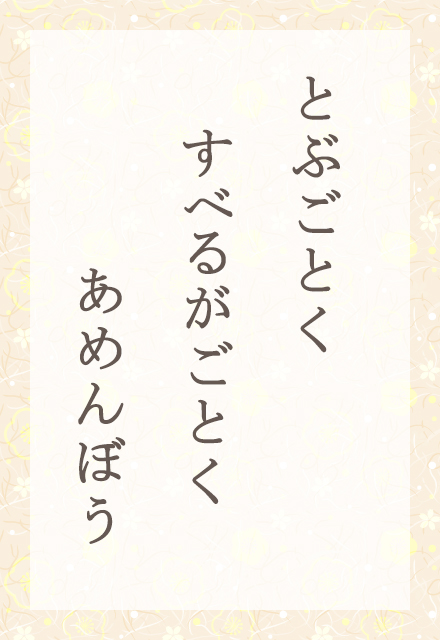 とぶごとく
すべるがごとく
あめんぼう